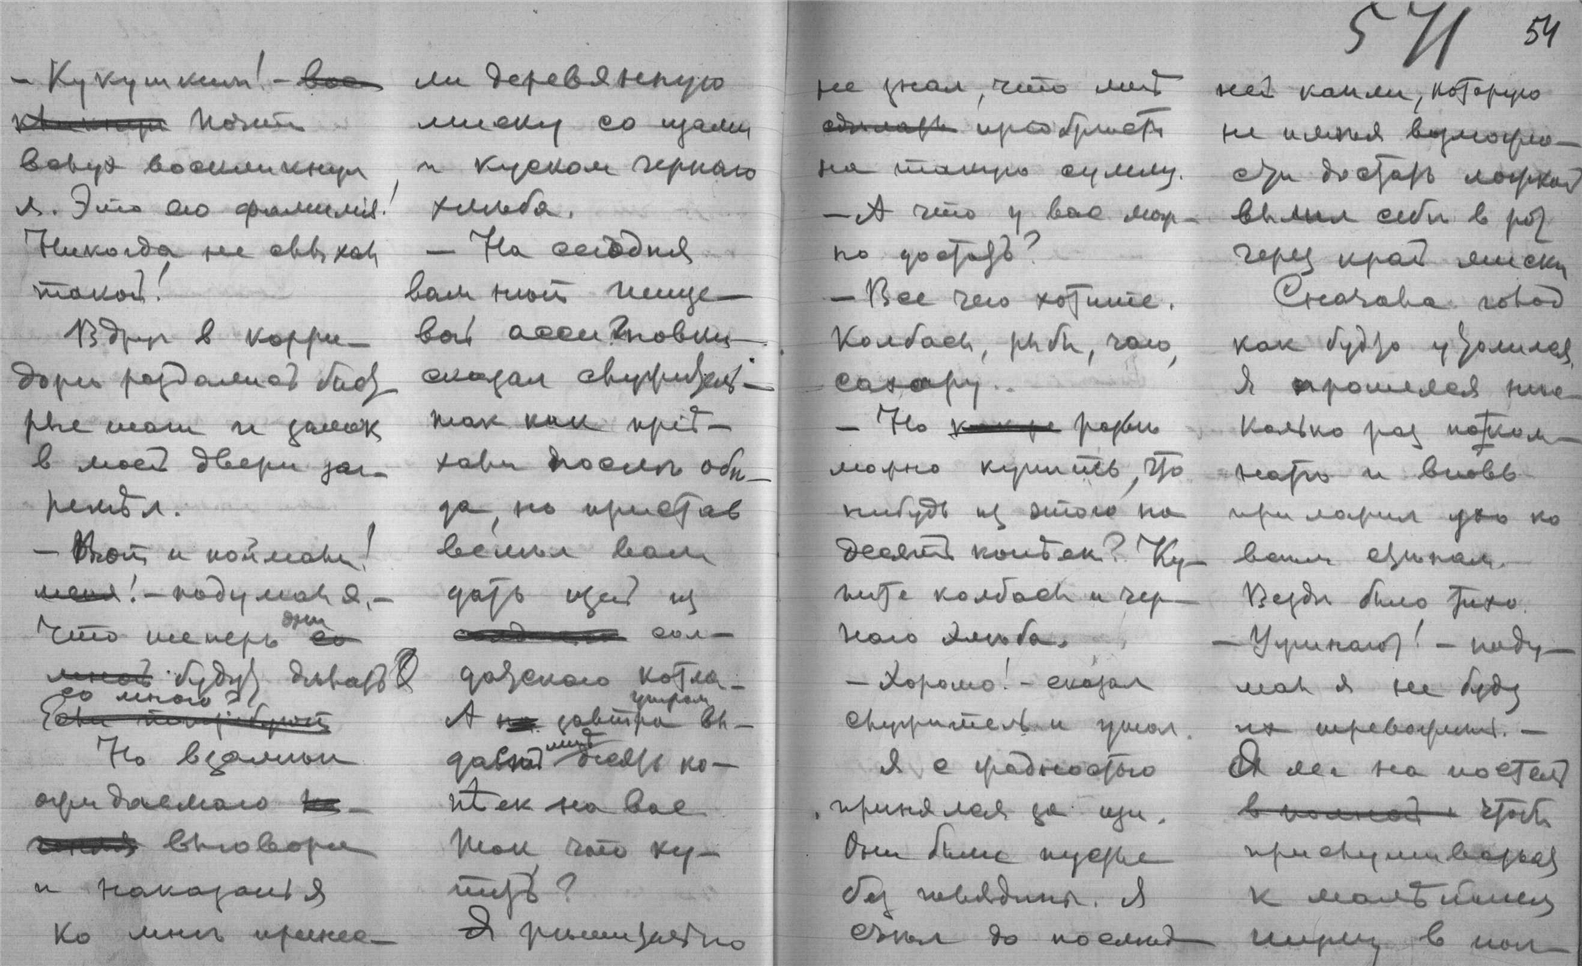 571 54
— Кукушкин! — вос
кликнул Почти
вслух воскликнул
я. Это его фамилія!
Никогда не слыхал
такой!
Вдруг в корри-
дорѣ раздались быст
рые шаги и замок
в моей двери за-
гремѣл.
— Вот и поймали!
меня! — подумал я, —
Что теперь они со
мной будут дѣлать
со мною?
Но взамѣн
ожидаемаго на-
чал выговора
и наказанья
ко мнѣ принес-
ли деревянную
миску со щами
и куском чернаго
хлѣба.
— На сегодня
вам нѣт пище-
вой ассигновки —
сказал служитель, —
так как пріѣ-
хали послѣ обѣ-
да, но пристав
велѣл вам
дать щей из
сол-
датскаго котла. —
А на завтра утром вы-
давай мнѣ десять ко-
пѣек на вас
Так что ку-
пить?
Я рѣшительно
не знал, что мнѣ
сдѣлать пріобрѣсти
на такую сумму.
— А что у вас мож-
но достать?
— Все чего хотите.
Колбасы, рыбы, чаю,
сахару..
— Но развѣ
можно купить, что
нибудь из этого на
десять копѣек? Ку-
пите колбасы и чер-
наго хлѣба.
— Хорошо! — сказал
служитель и ушел.
Я с радостью
принялся за щи.
Они были пустые
без говядины. Я
съѣл до послѣд-
ней капли, которую
не имѣя возможно-
сти достать ложкой
вылил себѣ в рот
через край миски
Сначала голод
как будто утолился,
Я прошелся нѣс-
колько раз по ком-
натѣ и вновь
приложил ухо ко
всѣм стѣнам. —
Вездѣ было тихо.
— Ужинают! — поду-
мал я не буду
их тревожить. —
Я лег на постель
в полной чтобы
прислушиваться
к малѣйшему
шуму в кор-